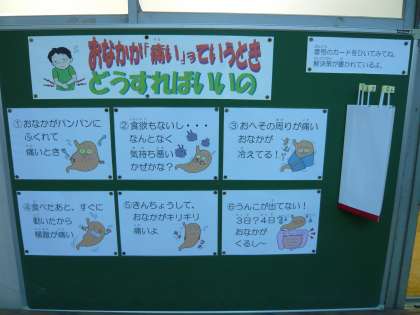 おなかが「痛い」っていうとき
どうすればいいの
番号のカードをひいてみてね。
解決策が書かれているよ。
①おなかがパンパンに
ふくれて
痛いとき
②食欲もないし・・・
なんとなく
気持ち悪い
かぜかな?
③おへその周りが痛い
おなかが
冷えてる!
④食べたあと、すぐに
動いたから
横腹が痛い
⑤きんちょうして、
おなかがキリキリ
痛いよ
⑥うんこが出てない!
3日?4日?
おなかが
くるし~